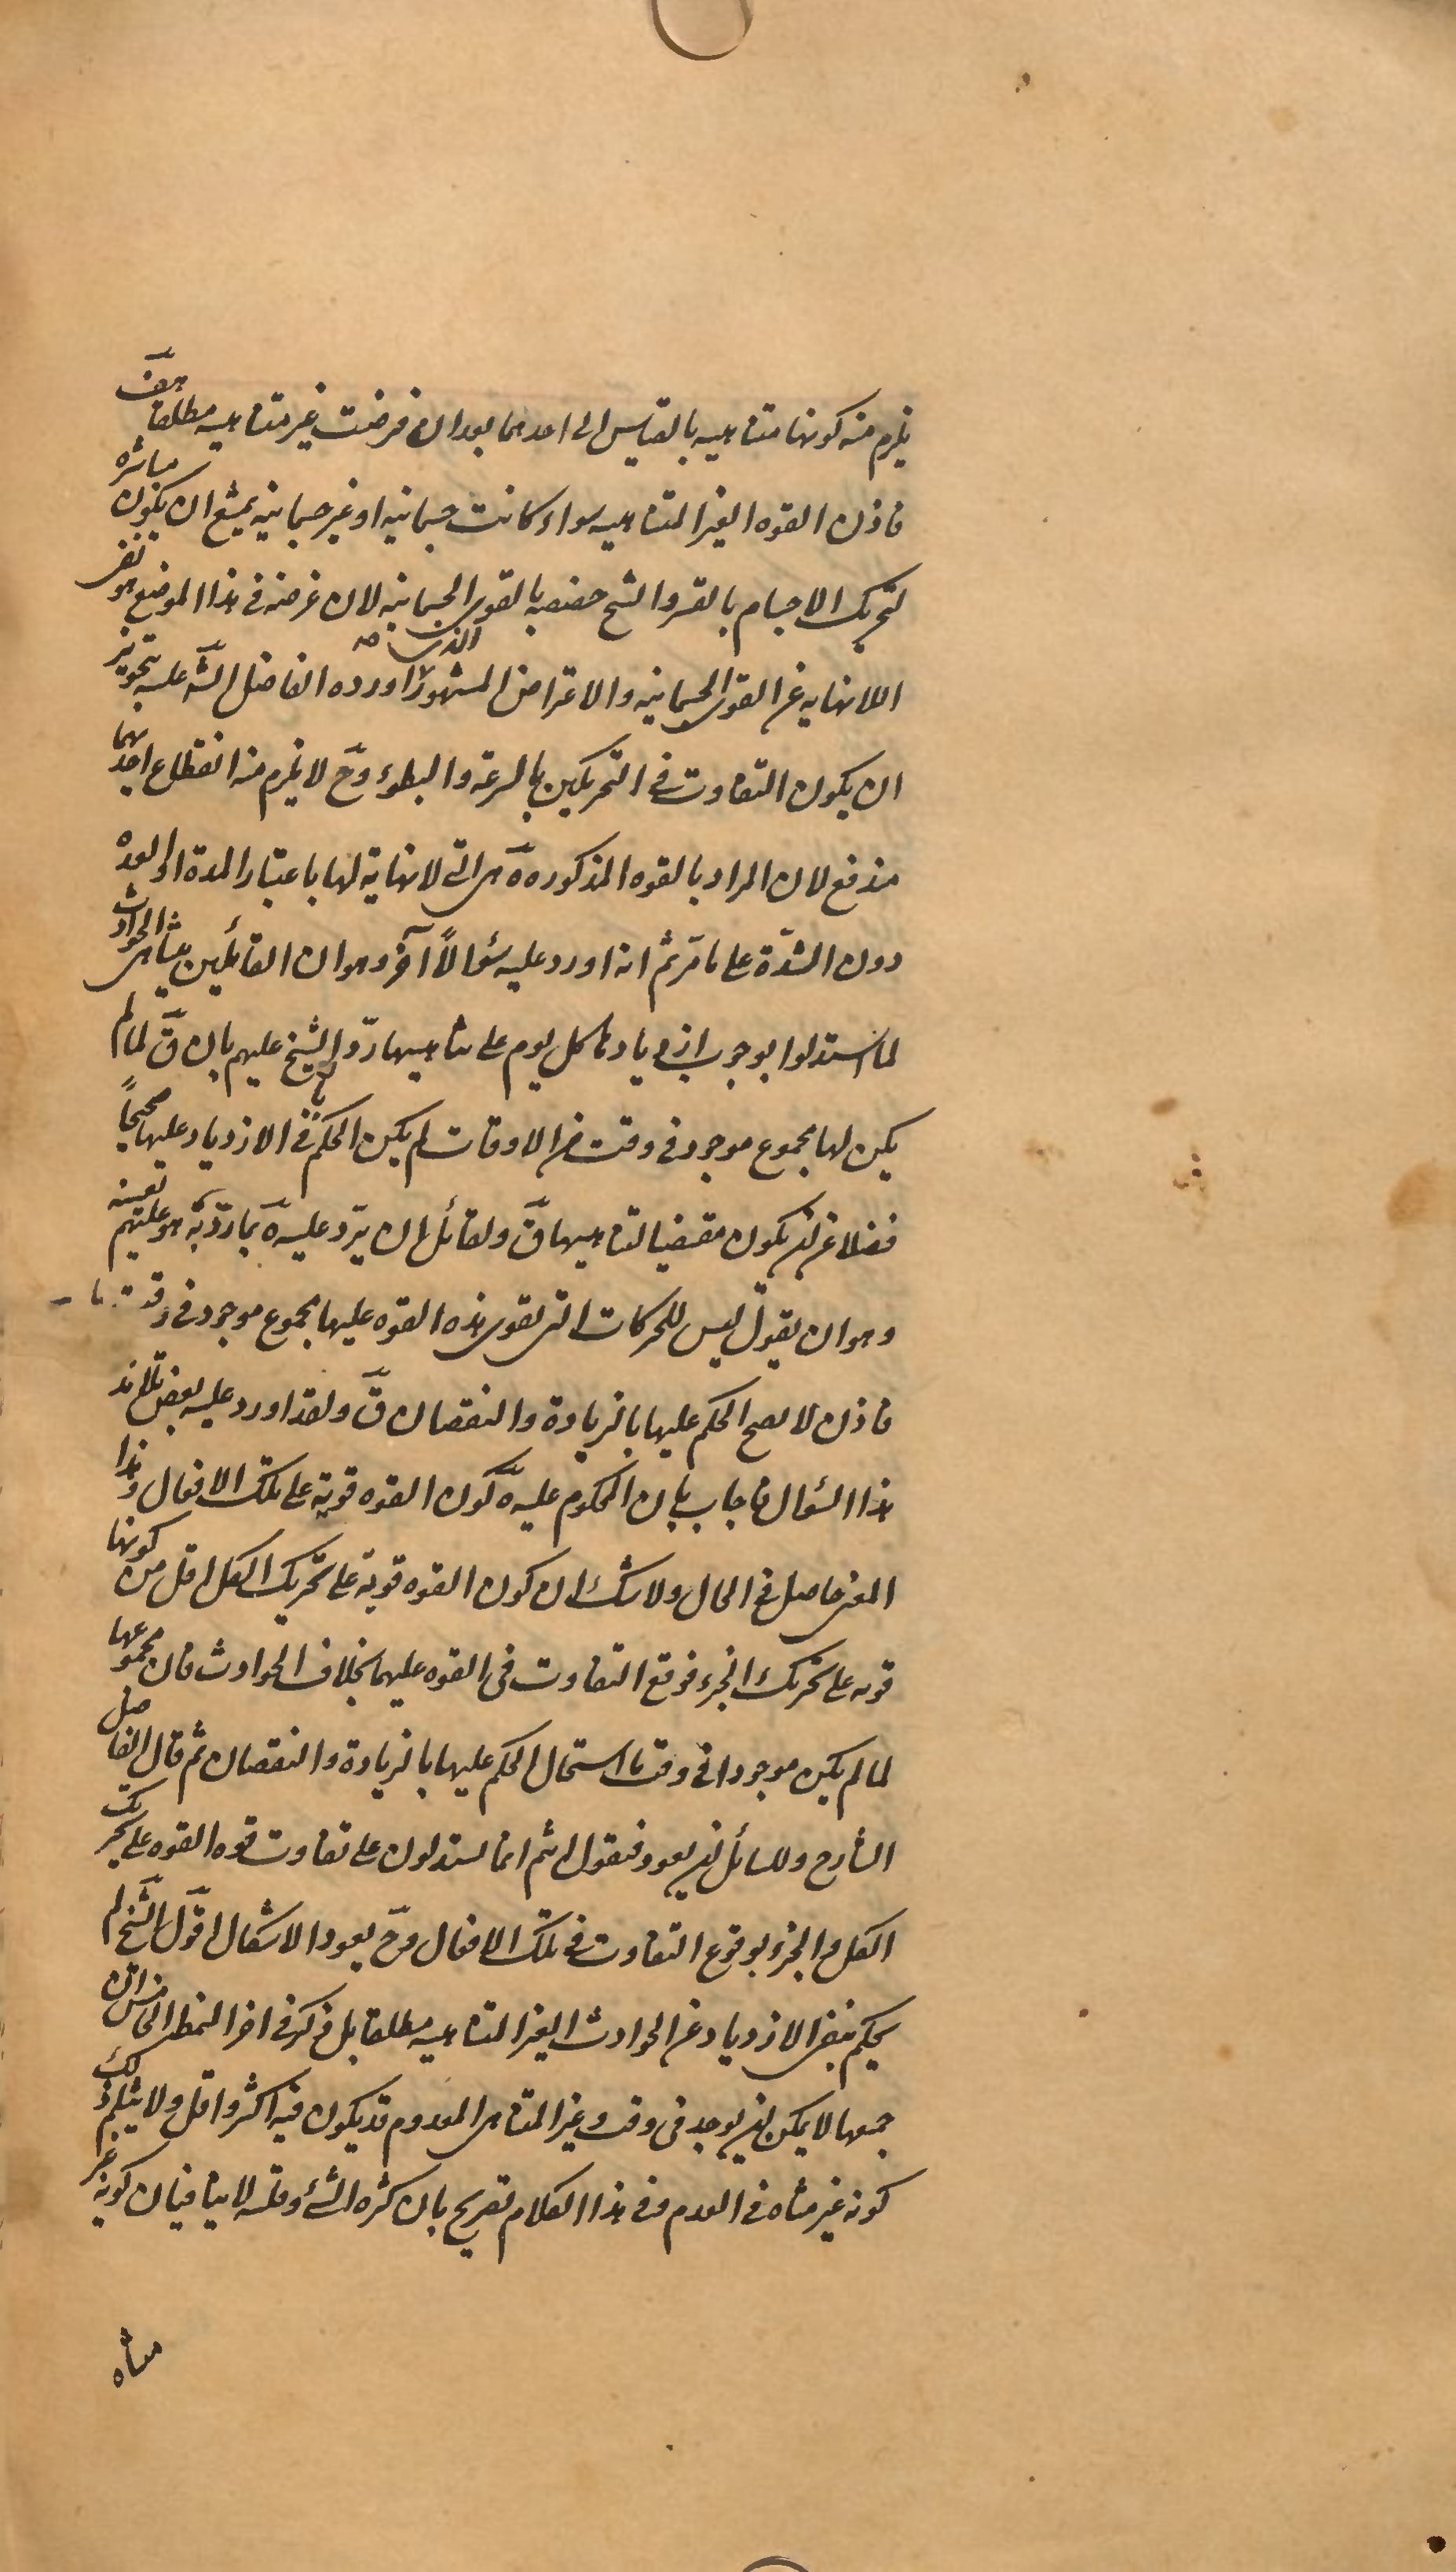 يلزم منه كونها متناهيه بالقياس الى احدهما بعد ان فرضت غير متناهيه مطلقا هف
فاذن القوه الغير المتناهيه سواء كانت جسمانيه او غير جسمانيه يمتنع ان يكون مباشره
لتحريك الاجسام بالقسر والشيخ خصصه بالقوى الجسمانيه لان غرضه فى هذا الموضع هو نفى
اللانهايه عن القوى الجسمانيه والاعتراض المشهور الذى اورده الفاضل الشه عليه بتجويز
ان يكون التفاوت فى التحريكين بالسرعة والبطوء وح لا يلزم منه انقطاع احدهما
مندفع لان المراد بالقوه المذكوره هٓ هى التى لا نهاية لها باعتبار المدة او العده
دون الشدّة على ما مرّ ثم انه اورد عليه سؤالاً آخر وهو ان القائلين بتناهى الحوادث
لما استدلوا بوجوب ازدياد كل يوم على تناهيها ردّ الشيخ عليهم بان قٓ لما لم
يكن لها مجموع موجود فى وقت من الاوقات لم يكن الحكم فى الازدياد عليها صحيحاً
فضلا عن ان يكون مقتضيا لتناهيها قٓ ولقائل ان يردّ عليه هٓ بما ردّ به هو عليهم بعينه
وهو ان يقول ليس للحركات التى تقوى هذه القوه عليها مجموع موجود فى وقت ما
فاذن لا يصح الحكم عليها بالزيادة والنقصان قٓ ولقد اورد عليه بعض تلامذ
هذا السؤال فاجاب بان المحكوم عليه هٓ كون القوه قوية على تلك الافعال وهذا
المعنى حاصل فى الحال ولا شك ان كون القوه قوية على تحريك الكل اقل من كونها
قويه على تحريك الجزء فوقع التفاوت فى القوه عليهما بخلاف الحوادث فان مجموعها
لما لم يكن موجودا فى وقت ما استحال الحكم عليها بالزيادة والنقصان ثم قال الفاضل
الشارح وللسائل ان يعود فيقول انتم انما تستدلون على تفاوت قوه القوه على تحريك
الكل والجزء بوقوع التفاوت فى تلك الافعال وح يعود الاشكال اقول الشيخ لم
يحكم بنفى الازدياد عن الحوادث الغير المتناهيه مطلقا بل ذكر فى اخر النمط الخامس ان
جمعها لا يمكن ان يوجد فى وقت وغير المتناهى المعدوم قد يكون فيه اكثر واقل ولا يثلم ذلك
كونه غير متناه فى العدم ففى هذا الكلام تصريح بان كثره الشئ وقلته لا ينافيان كونه غير
متناه